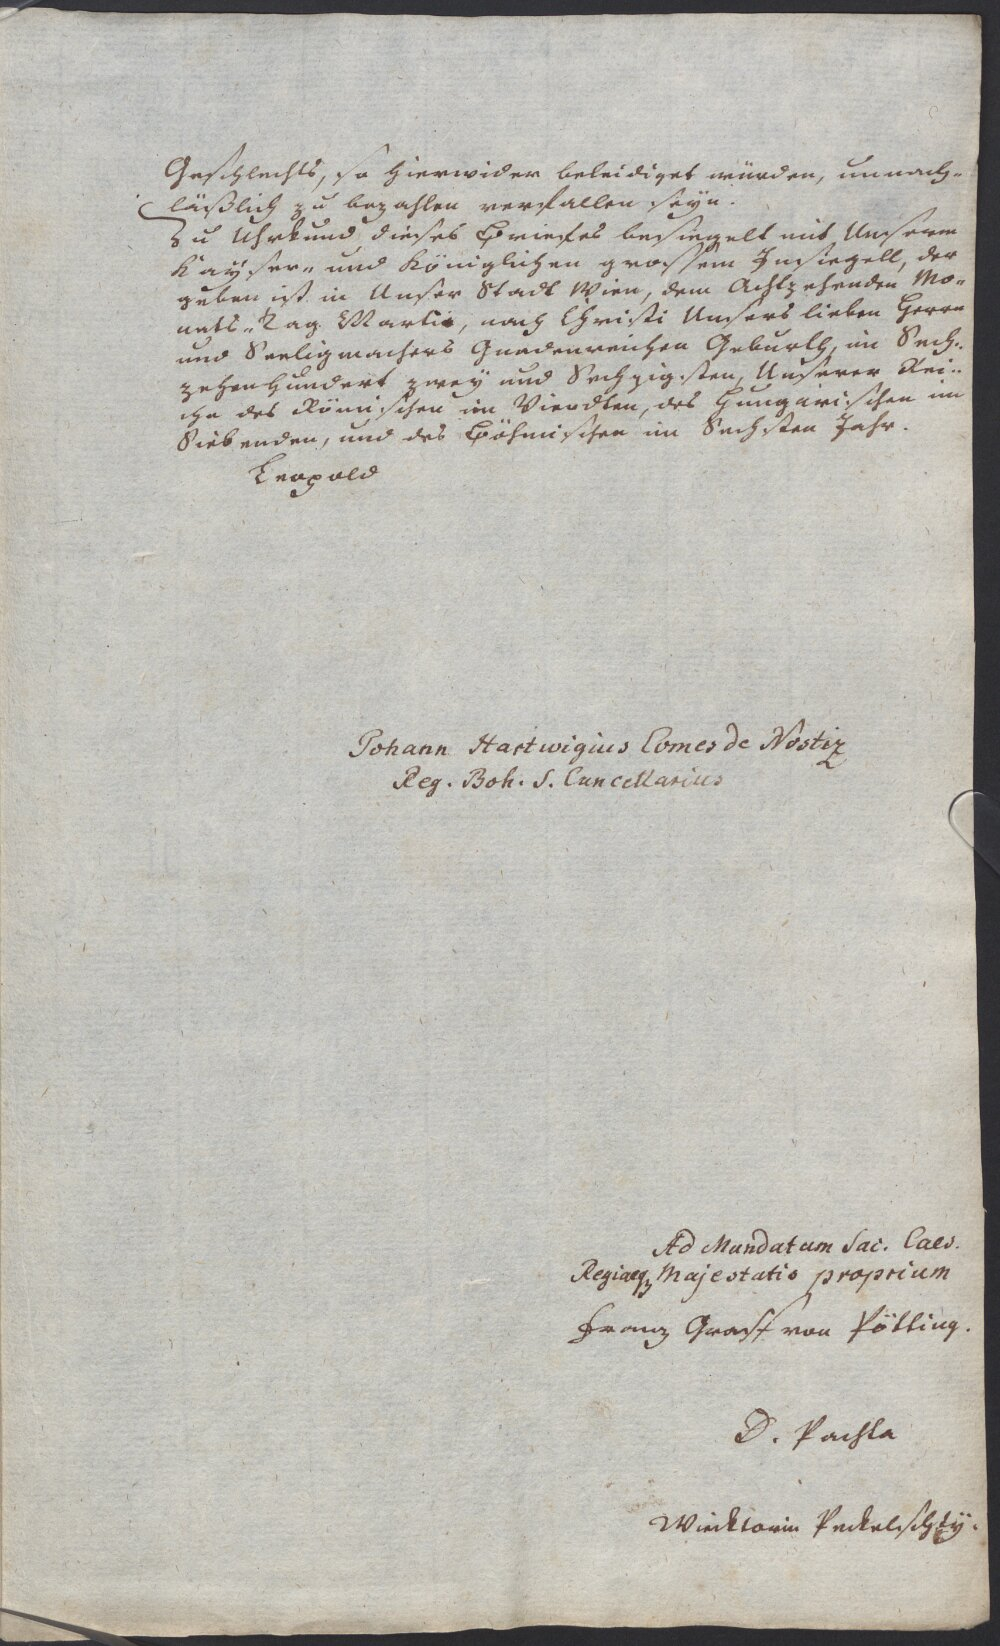 Geschlechts, so hierwider beleidiget würden, unnach-
läßlich zu bezahlen verfallen seyn.
Zu Uhrkund dieses Briefes besiegelt mit Unserm
Kayser- und Königlichen grossem Insiegell, der
geben ist in Unser Stadt Wien, dem Achtzehenden Mo-
nats-Tag Martii, nach Christi Unsers lieben Herrn
und Seeligmachers Gnadenreichen Geburth, im Sech-
zehenhundert zwey und Sechzigsten, Unserer Rei-
che des Römischen im Vierdten, des Hungarischen im
Siebenden, und des Böhmischen im Sechsten Jahr.
Leopold
Johann Hartwigius Comes de Nostiz
Reg. Boh. S. Cancellarius
Ad Mandatum Sac. Caes.
Regiaeq Majestatis proprium
Franz Graff von Pötting.
D. Pachta